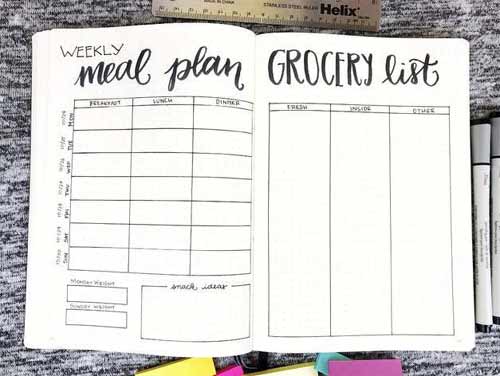 MADE IN CHINA
STAINLESS STEEL RULER
Helix
WEEKLY
meal plan
BREAKFAST LUNCH DINNER
MON
TUE
WED
THU
FRI
SAT
SUN
MONDAY WEIGHT
SUNDAY WEIGHT
snack ideas
GROCERY list
FRESH INSIDE OTHER